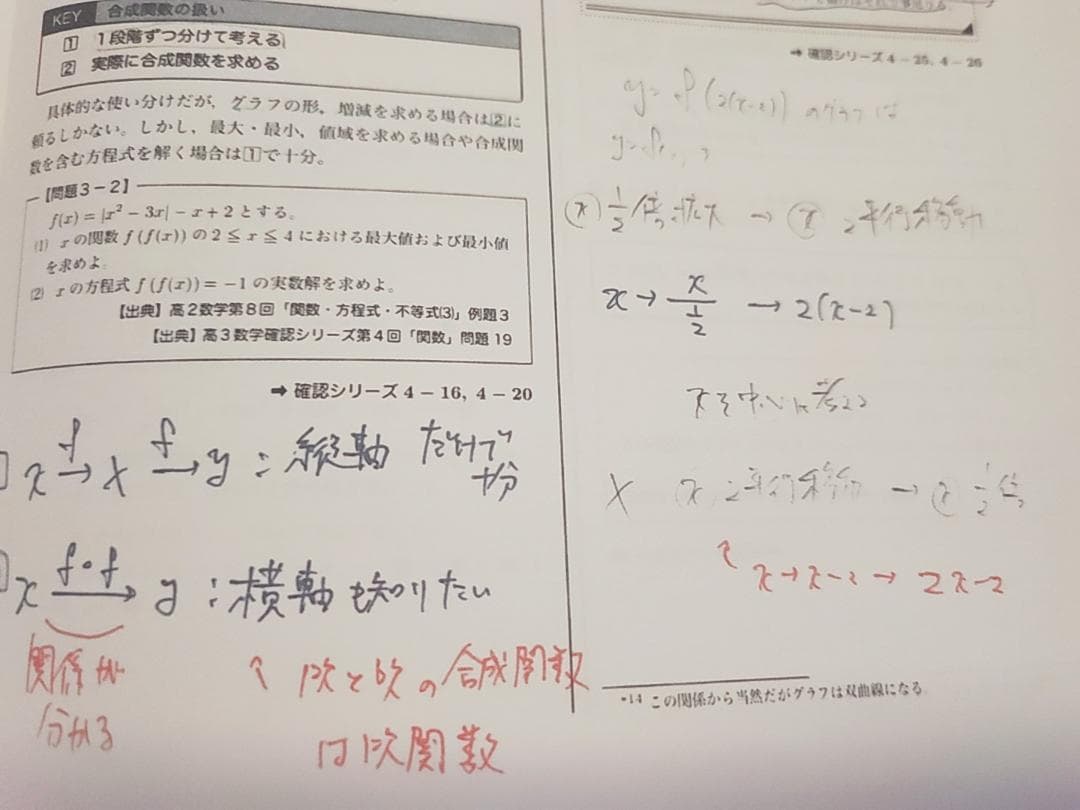 KEY 合成関数の扱い
1 1段階ずつ分けて考える
2 実際に合成関数を求める
具体的な使い分けだが，グラフの形，増減を求める場合は2に
頼るしかない。しかし，最大・最小，値域を求める場合や合成関
数を含む方程式を解く場合は1で十分。
【問題3－2】
f(x)＝|x²－3x|－x＋2とする。
(1) xの関数 f(f(x)) の 2≦x≦4における最大値および最小値
を求めよ。
(2) xの方程式 f(f(x))＝－1の実数解を求めよ。
【出典】高2数学第8回「関数・方程式・不等式(3)」例題3
【出典】高3数学確認シリーズ第4回「関数」問題19
➡ 確認シリーズ4－16, 4－20
x →f X →f y : 縦軸 だけで
十分
x →f∘f y : 横軸も知りたい
関係が
分かる
↑ 1次と1次の合成関数
は1次関数
➡ 確認シリーズ4－25, 4－26
y=f(2(x-2)) のグラフは
y=f
(x) 1/2倍拡大 → (x) 2平行移動
x → x/(1/2) → 2(x-2)
x 2平行移動 → (x) 1/2倍
↑ x→x-2→2x-2
*14 この関係から当然だがグラフは双曲線になる